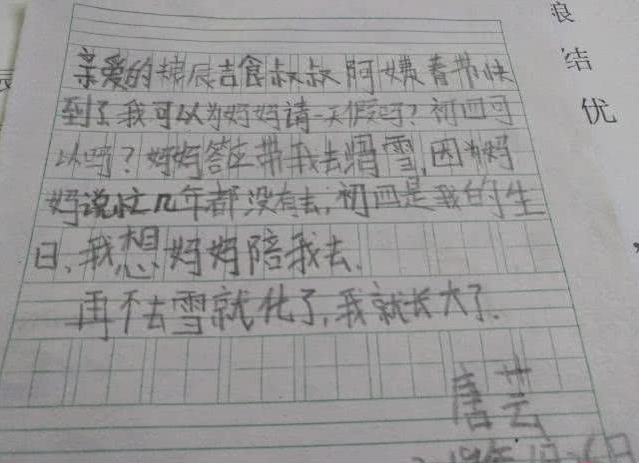 亲爱的糖辰吉食叔叔阿姨春节快
到了我可以为妈妈请一天假吗?初四可
以吗?妈妈答应带我去滑雪,因为妈
妈说忙几年都没有去,初四是我的生
日,我想妈妈陪我去.
再不去雪就化了,我就长大了.
唐芸
浪
结
优